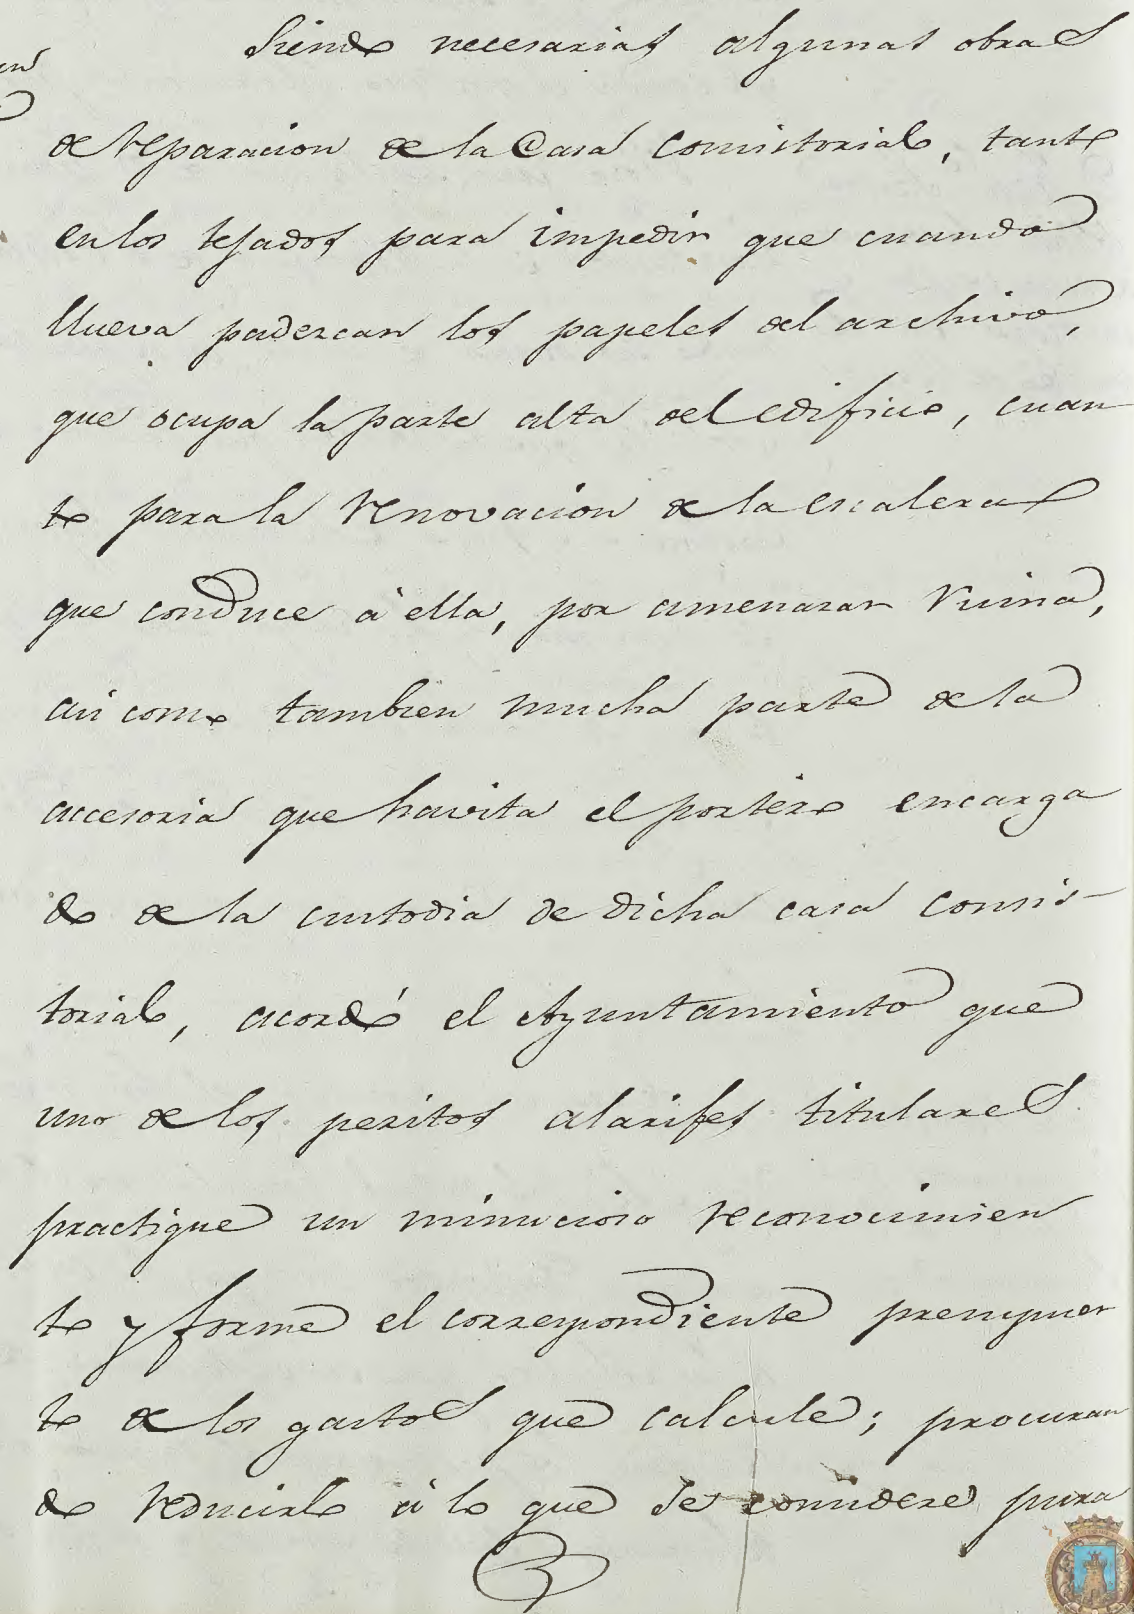 Siendo necesarias algunas obras
de reparacion de la Casa Consistorial, tanto
en los tejados para impedir que cuando
llueva padezcan los papeles del archivo,
que ocupa la parte alta del edificio, cuan
to para la renovacion de la escalera
que conduce á ella, por amenazar ruina,
asi como tambien mucha parte de la
accesoria que havita el portero encarga
do de la custodia de dicha casa consis-
torial, acordó el Ayuntamiento que
uno de los peritos alarifes titulares
practique un minucioso reconocimien
to y forme el correspondiente presupues
to de los gastos que calcule; procuran
do reducirlo á lo que se considere pura